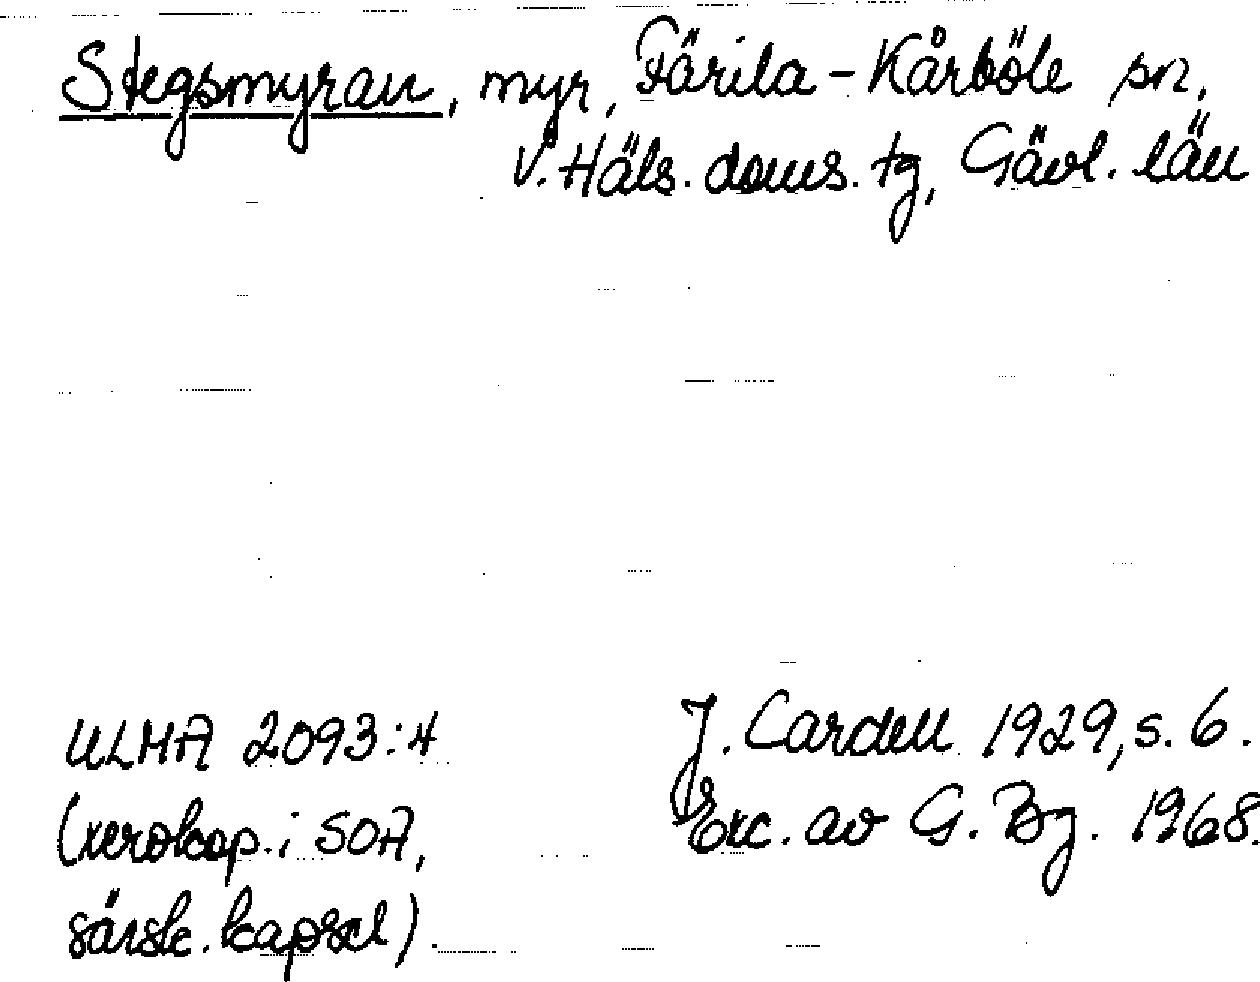 Stegsmyran, myr, Färila-Kårböle sn,
V. Häls. doms. tg, Gävl. län
ULMA 2093:4
(xerokop. i SOA,
särsk. kapsel).
J. Cardell 1929, s. 6.
Exc. av G. Bg. 1968.